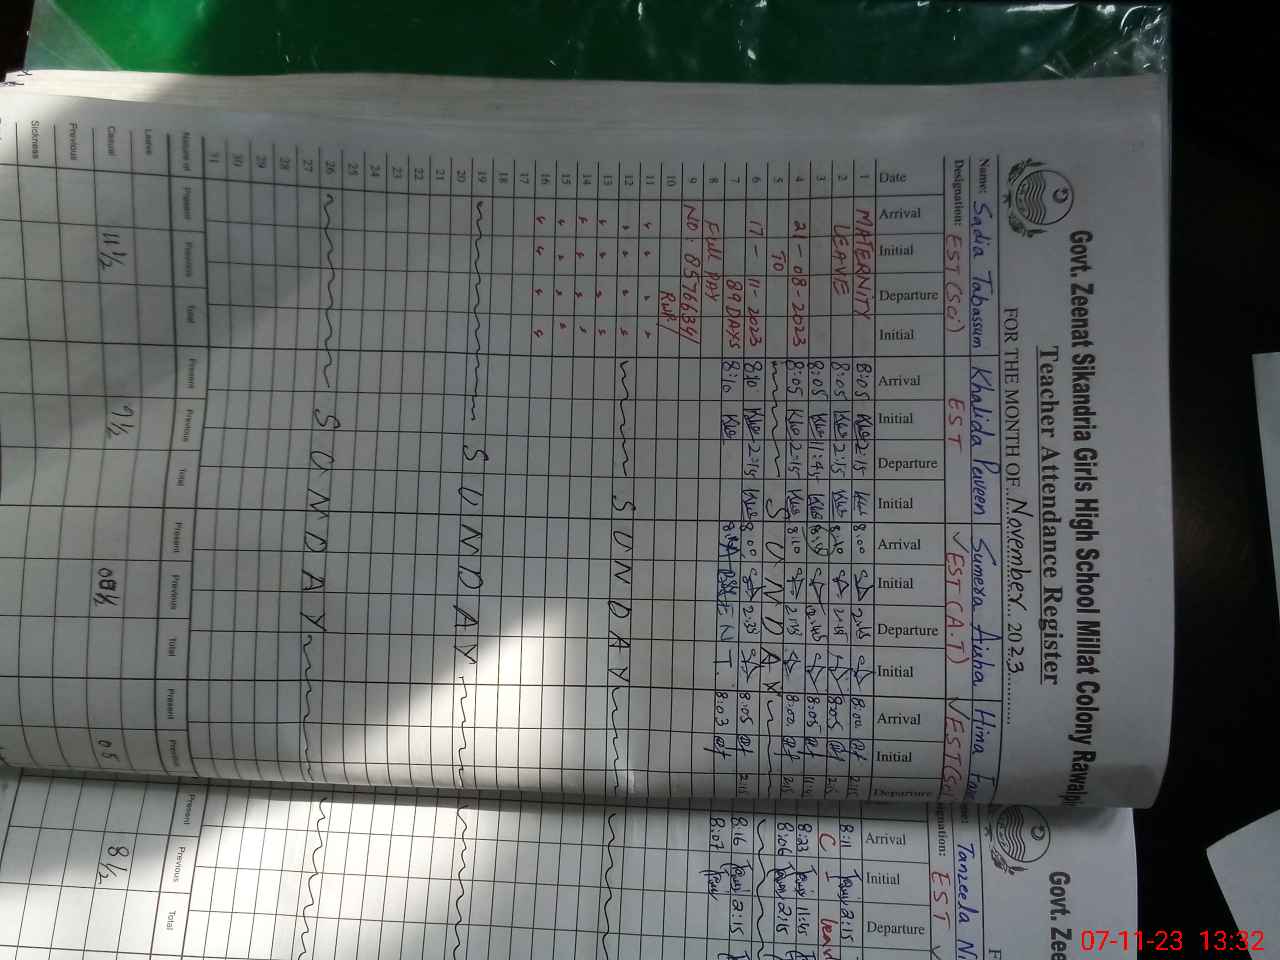 Govt. Zeenat Sikandria Girls High School Millat Colony Rawalpi
Teacher Attendance Register
FOR THE MONTH OF November 2023
Name: Sadia Tabassum Khalida Parveen Sumera Aisha Hina
Designation: EST (Sci) EST EST (A.T) EST (Sci)
Date Arrival Initial Departure Initial Arrival Initial Departure Initial Arrival Initial Departure Initial Arrival Initial Departure
1 MATERNITY 8:05 2:15 8:00 2:45 8:00 2:15
2 LEAVE 8:05 2:15 8:10 2:15 8:05 2:15
3 8:05 11:45 12:45 8:05
4 21-08-2023 8:05 2:15 8:10 2:15 8:00 2:15
5 TO SUNDAY
6 17-11-2023 8:10 2:15 8:00 2:35 8:05 2:15
7 89 DAYS 8:10 ABSENT. 8:03
8 Full PAY
9 NO: 8576634/
10 RWP/
11
12 SUNDAY
13
14
15
16
17
18
19 SUNDAY
20
21
22
23
24
25
26 SUNDAY
27
28
29
30
31
Nature of Present Previous Total Present Previous Total Present Previous Total Present Previous
Leave
Casual 11 1/2 9 1/2 08 1/2 05
Previous
Sickness
Govt. Zee
Tanzeela
EST
Arrival Initial Departure
8:11 2:15
C L
8:23 11:45
8:06 2:15
8:16 2:15
8:07
Present Previous Total
8 1/2
07-11-23 13:32